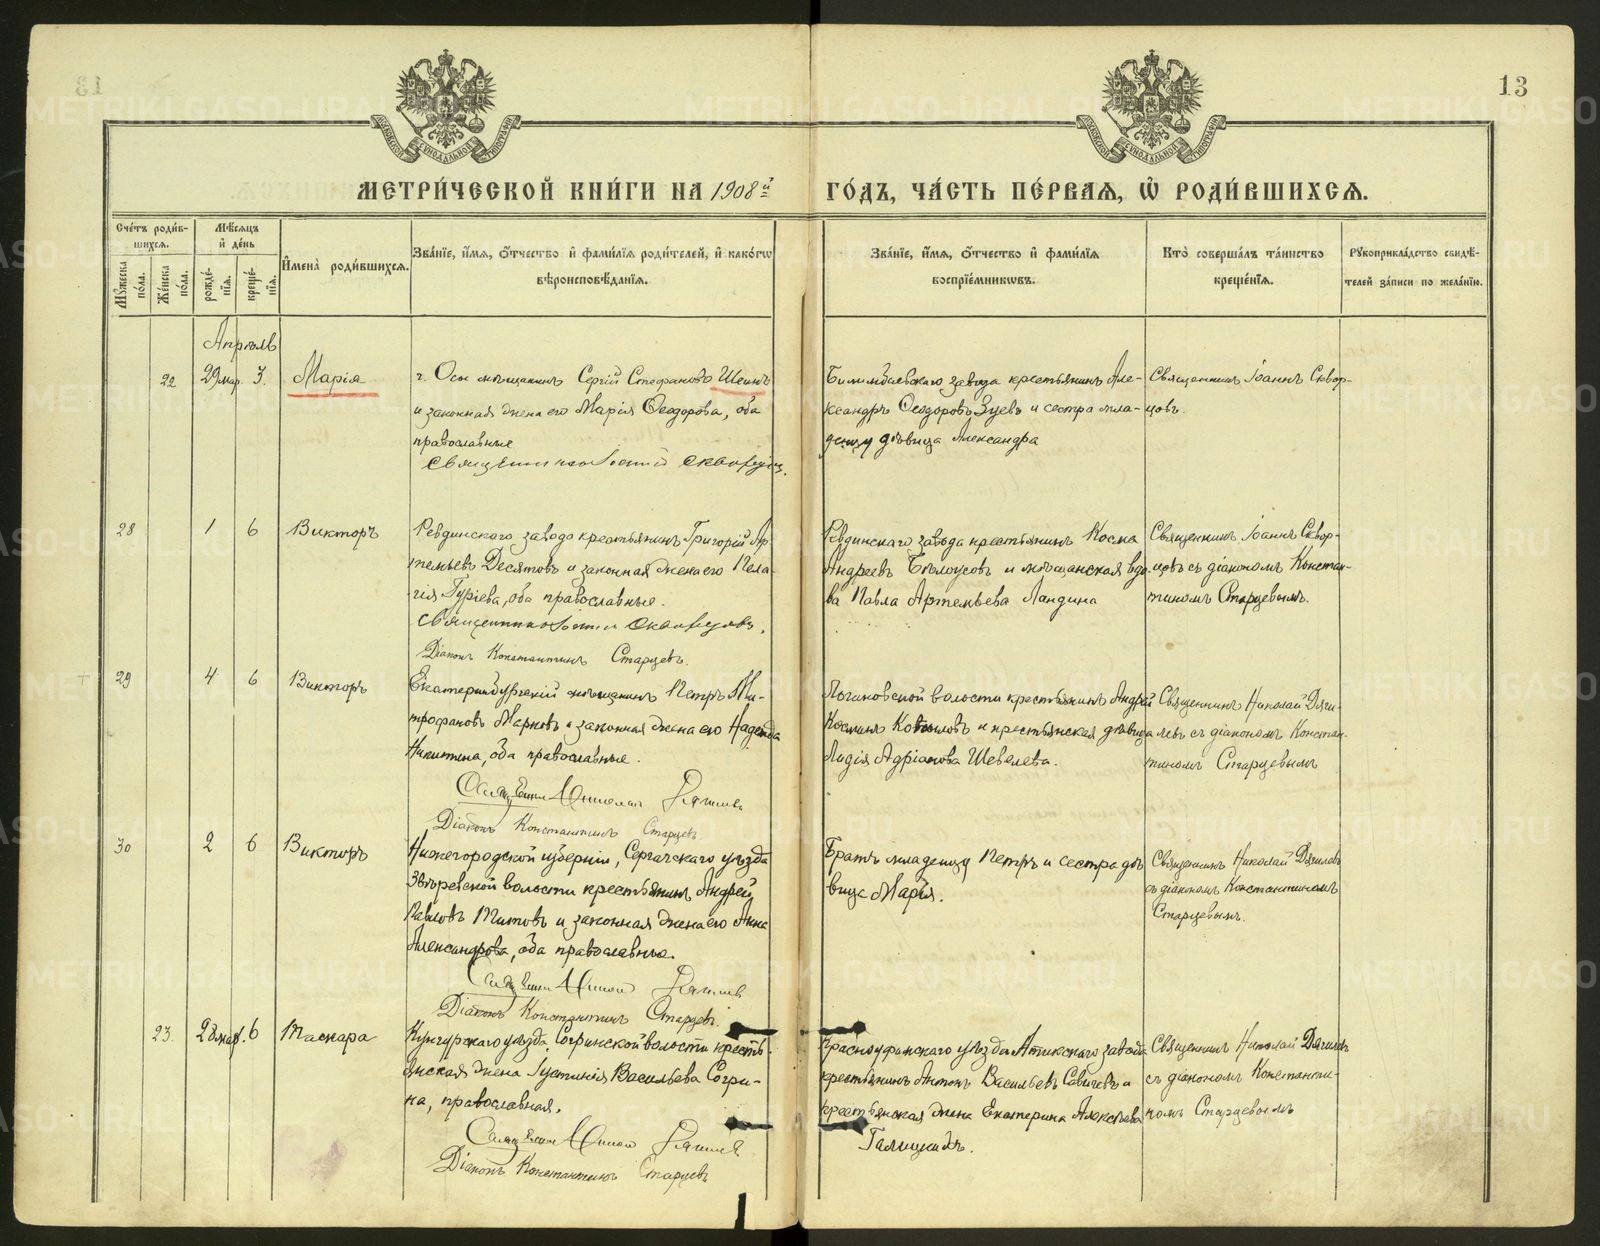 13
МЕТРИ́ЧЕСКОЙ КНИ́ГИ НА 1908й
ГО́ДЪ, ЧА́СТЬ ПЕ́РВАЯ, Ѡ РОДИ́ВШИХСЯ.
Сче́тъ роди́в-
шихся.
Мꙋжеска по́ла.
Же́нска по́ла.
Мѣ́сяцъ и де́нь
рожде́-
нїя.
креще́-
нїя.
И҆мена̀ роди́вшихся.
Зва́нїе, и҆́мя, ѻ҆́тчество и҆ фами́лїя роди́телей, и҆ како́гѡ
вѣроисповѣ́данїя.
Зва́нїе, и҆́мя, ѻ҆́тчество и҆ фами́лїя
воспрїе́мникѡвъ.
Кто̀ соверша́лъ та́инство
креще́нїя.
Рꙋкоприкла́дство свидѣ́-
телей за́писи по жела́нїю.
Апрѣль
22 29 мар. 3. Марія
г. Осы мѣщанинъ Сергій Стефановъ Шеинъ
и законная жена его Марія Ѳеодорова, оба
православные
Священникъ Іоаннъ Скворцовъ.
Билимбаевскаго завода крестьянинъ Але-
ксандръ Ѳеодоровъ Зуевъ и сестра мла-
денцу дѣвица Александра
Священникъ Іоаннъ Сквор-
цовъ.
28 1 6 Викторъ
Ревдинскаго завода крестьянинъ Григорій Ар-
темьевъ Десятовъ и законная жена его Пела-
гія Гуріева, оба православные.
Священникъ Іоаннъ Скворцовъ.
Діаконъ Константинъ Старцевъ.
Ревдинскаго завода крестьянинъ Косма
Андреевъ Бѣлоусовъ и мѣщанская вдо-
ва Павла Артемьева Ландина
Священникъ Іоаннъ Сквор-
цовъ съ діакономъ Констан-
тиномъ Старцевымъ.
29 4 6 Викторъ
Екатеринбургскій мѣщанинъ Петръ Ми-
трофановъ Марковъ и законная жена его Надежда
Никитина, оба православные.
Священникъ Николай Дягилевъ
Діаконъ Константинъ Старцевъ
Логиновской волости крестьянинъ Андрей
Косминъ и крестьянская дѣвица
Лидія Адріанова Шевелева.
Священникъ Николай Дяги-
левъ съ діакономъ Констан-
тиномъ Старцевымъ
30 2 6 Викторъ
Нижегородской губерніи, Сергачскаго уѣзда
волости крестьянинъ Андрей
Павловъ Титовъ и законная жена его Анна
Александрова, оба православные.
Священникъ Николай Дягилевъ
Діаконъ Константинъ Старцевъ.
Братъ младенцу Петръ и сестра дѣ-
вица Марія.
Священникъ Николай Дягилевъ
съ діакономъ Константиномъ
Старцевымъ.
23. 28 мар. 6 Таскара
Кунгурскаго уѣзда, Согринской волости кресть-
янская жена Іустинія Васильева Согри-
на, православная.
Священникъ Николай Дягилевъ
Діаконъ Константинъ Старцевъ
Красноуфимскаго уѣзда Атигскаго завода
крестьянинъ Антонъ Васильевъ Савичевъ и
крестьянская жена Екатерина Алексѣева
Галицкихъ.
Священникъ Николай Дягилевъ
съ діакономъ Константи-
номъ Старцевымъ
METRIKI.GASO-URAL.RU